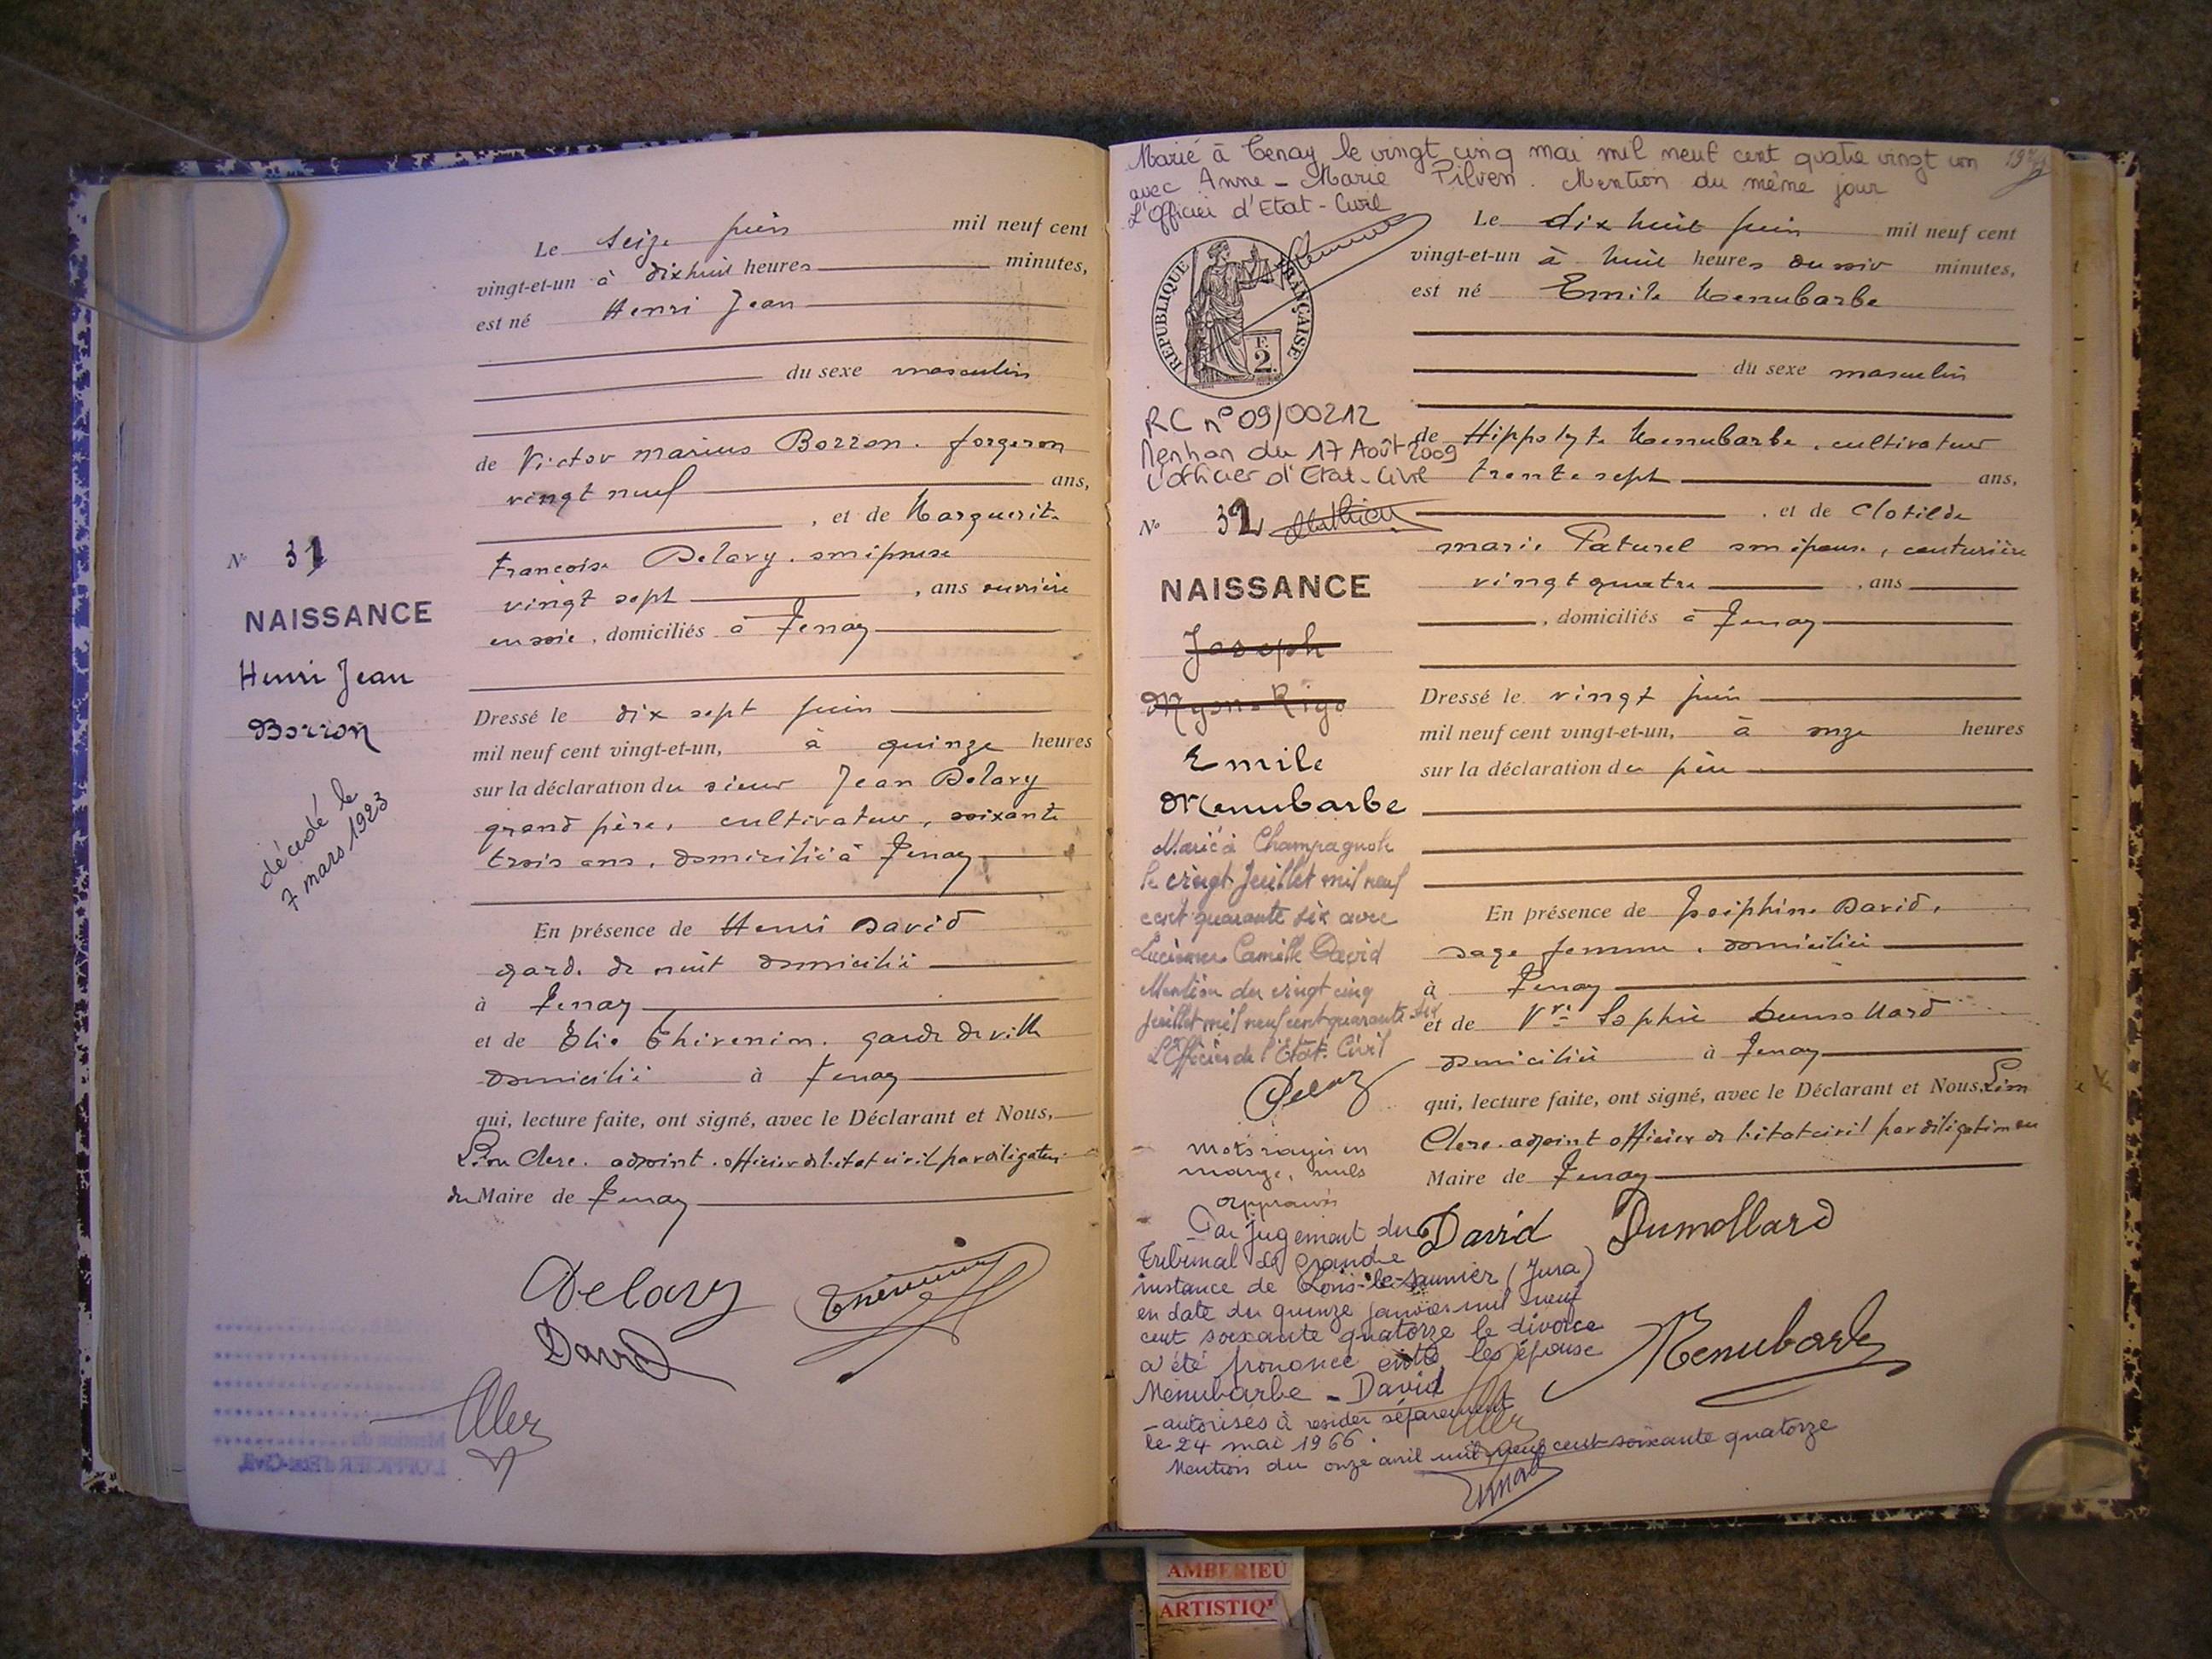 Le seize juin mil neuf cent
vingt-et-un à dixhuit heures minutes,
est né Henri Jean
du sexe masculin
de Victor Marius Borron. forgeron
vingt neuf ans,
, et de Marguerite
Françoise Delavy. son épouse
vingt sept , ans ouvrière
en soie, domiciliés à Tenay
Dressé le dix sept juin
mil neuf cent vingt-et-un, à quinze heures
sur la déclaration du sieur Jean Delavy
grand père, cultivateur, soixante
trois ans, domicilié à Tenay
En présence de Henri David
garde de nuit domicilié
à Tenay
et de Elie Thévenin. garde de ville
domicilié à Tenay
qui, lecture faite, ont signé, avec le Déclarant et Nous,
Léon Clerc. adjoint. officier de l'état civil par délégation
du Maire de Tenay
Delavy
David
No 31
NAISSANCE
Henri Jean
Borron
décédé le
7 mars 1923
Marié à Tenay le vingt cinq mai mil neuf cent quatre vingt un
avec Anne-Marie Pilven. Mention du même jour
L'Officier d'Etat-Civil
REPUBLIQUE FRANÇAISE
F.
2.
RC n° 09/00212
Menhon du 17 Août 2009
L'officier d'Etat-Civil
No 32 Mathieu
NAISSANCE
Joseph
Emile
Menubarbe
Marié à Champagnole
le vingt Juillet mil neuf
cent quarante six avec
Lucienne Camille David
Mention du vingt cinq
Juillet mil neuf cent quarante six
L'Officier de l'Etat Civil
Mots rayés en
marge, nuls
approuvés
Par jugement du
Tribunal de Grande
instance de Lons-le-Saunier (Jura)
en date du quinze janvier mil neuf
cent soixante quatorze le divorce
a été prononcé entre les épouse
Menubarbe - David
- autorisés à resider séparement
le 24 mai 1966.
Mention du onze avril mil neuf cent soixante quatorze
Le dix huit juin mil neuf cent
vingt-et-un à huit heures du soir minutes,
est né Emile Menubarbe
du sexe masculin
de Hippolyte Menubarbe, cultivateur
trente sept ans,
, et de Clotilde
Marie Paturel son épouse, couturière
vingt quatre , ans
, domiciliés à Tenay
Dressé le vingt juin
mil neuf cent vingt-et-un, à onze heures
sur la déclaration du père
En présence de Joséphine David,
sage femme, domiciliée
à Tenay
et de Vve Sophie Dumollard
domiciliée à Tenay
qui, lecture faite, ont signé, avec le Déclarant et Nous, Léon
Clerc. adjoint officier de l'état civil par délégation du
Maire de Tenay
David Dumollard
Menubarbe
AMBERIEU
ARTISTIQ